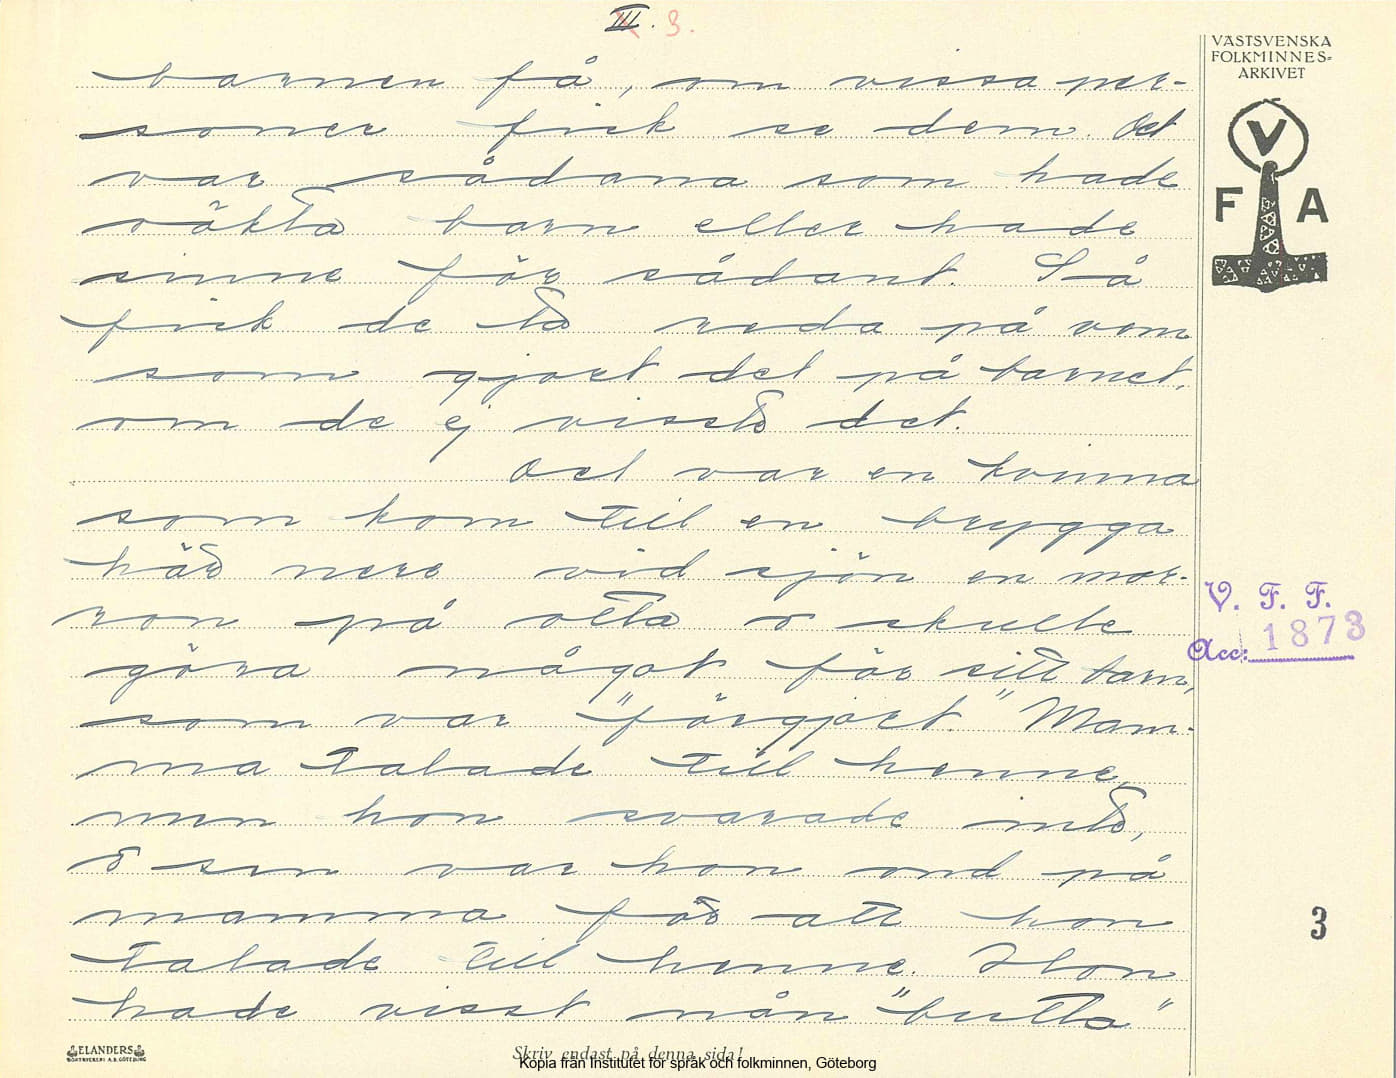 III. 3.
VÄSTSVENSKA
FOLKMINNES-
ARKIVET
V
F A
barnen få, om vissa per-
soner fick se dem. Det
var sådana som hade
oäkta barn eller hade
sinne för sådant. Så
fick de ta reda på vem
som gjort det på barnet,
om de ej visste det.
Det var en kvinna
som kom till en brygga
här nere vid sjön en mor-
ron på otta o skulle
göra något för sitt barn,
som var "förgjort." Mam-
ma talade till henne,
men hon svarade inte,
o sen var hon ond på
mamma för att hon
talade till henne. Hon
hade visst nån "butta"
V. F. F.
Acc: 1873
3
ELANDERS
BOKTRYCKERI A.B. GÖTEBORG
Skriv endast på denna sida!
Kopia från Institutet för språk och folkminnen, Göteborg